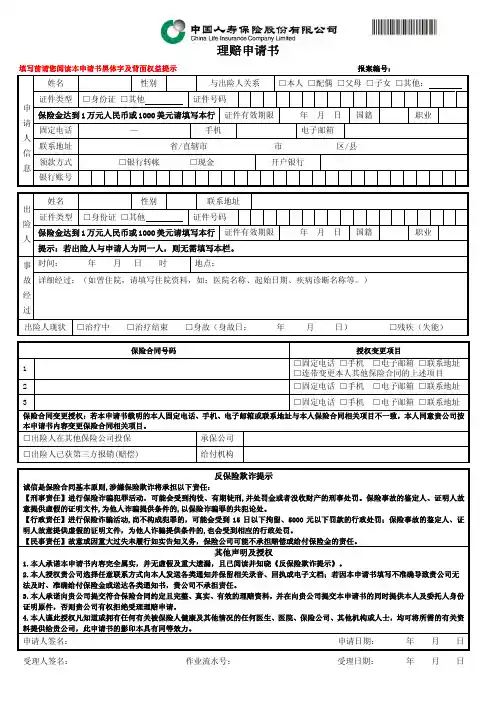 中国人寿保险股份有限公司
China Life Insurance Company Limited
理赔申请书
填写前请您阅读本申请书黑体字及背面权益提示 报案编号:
申请人信息
姓名 性别 与出险人关系 □本人 □配偶 □父母 □子女 □其他:
证件类型 □身份证 □其他 证件号码
保险金达到1万元人民币或1000美元请填写本行 证件有效期限 年 月 日 国籍 职业
固定电话 — 手机 电子邮箱
联系地址 省/直辖市 市 区/县
领款方式 □银行转帐 □现金 开户银行
银行账号
出险人
姓名 性别 联系地址
证件类型 □身份证 □其他 证件号码
保险金达到1万元人民币或1000美元请填写本行 证件有效期限 年 月 日 国籍 职业
提示：若出险人与申请人为同一人，则无需填写本栏。
事故经过
时间： 年 月 日 时 地点:
详细经过：（如曾住院，请填写住院资料，如：医院名称、起始日期、疾病诊断名称等。）
出险人现状 □治疗中 □治疗结束 □身故（身故日： 年 月 日） □残疾（失能）
保险合同号码 授权变更项目
1 □固定电话 □手机 □电子邮箱 □联系地址
□连带变更本人其他保险合同的上述项目
2 □固定电话 □手机 □电子邮箱 □联系地址
3 □固定电话 □手机 □电子邮箱 □联系地址
保险合同变更授权：若本申请书载明的本人固定电话、手机、电子邮箱或联系地址与本人保险合同相关项目不一致，本人同意贵公司按
本申请书内容变更保险合同相关项目。
□出险人在其他保险公司投保 承保公司
□出险人已获第三方报销(赔偿) 给付机构
反保险欺诈提示
诚信是保险合同基本原则,涉嫌保险欺诈将承担以下责任：
【刑事责任】进行保险诈骗犯罪活动，可能会受到拘役、有期徒刑,并处罚金或者没收财产的刑事处罚。保险事故的鉴定人、证明人故
意提供虚假的证明文件,为他人诈骗提供条件的,以保险诈骗罪的共犯论处。
【行政责任】进行保险诈骗活动,尚不构成犯罪的，可能会受到 15 日以下拘留、5000 元以下罚款的行政处罚；保险事故的鉴定人、证
明人故意提供虚假的证明文件，为他人诈骗提供条件的,也会受到相应的行政处罚。
【民事责任】故意或因重大过失未履行如实告知义务，保险公司可能不承担赔偿或给付保险金的责任。
其他声明及授权
1.本人承诺本申请书内容完全属实，并无虚假及重大遗漏，且已阅读并知晓《反保险欺诈提示》。
2.本人授权贵公司选择任意联系方式向本人发送各类通知并保留相关录音、回执或电子文档；若因本申请书填写不准确导致贵公司无
法及时、准确给付保险金或送达各类通知书，贵公司不承担责任。
3.本人承诺向贵公司提交符合保险合同约定且完整、真实、有效的理赔资料。并在向贵公司提交本申请书的同时提供本人及委托人身份
证明原件，否则贵公司有权拒绝受理理赔申请。
4.本人谨此授权凡知道或拥有任何有关被保险人健康及其他情况的任何医生、医院、保险公司、其他机构或人士，均可将所需的有关资
料提供给贵公司，此申请书的影印本具有同等效力。
申请人签名: 申请日期： 年 月 日
受理人签名: 作业流水号: 受理日期： 年 月 日